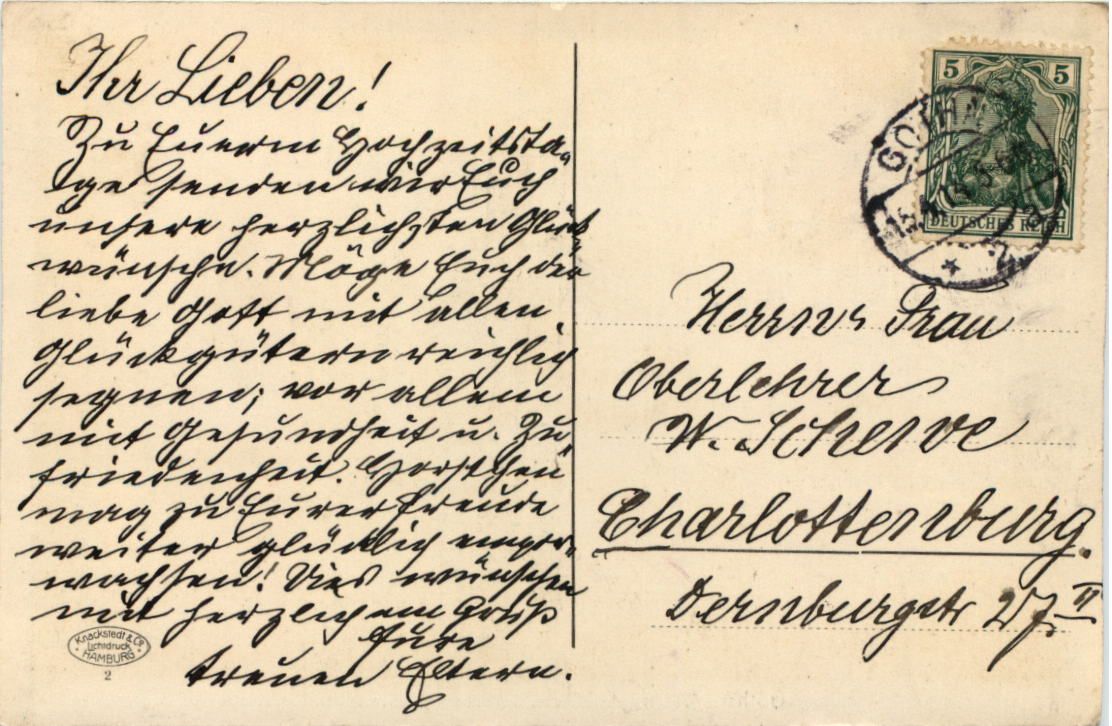 Ihr Lieben!
Zu Eurem Hochzeitsta-
ge senden wir Euch
unsere herzlichsten Glück
wünsche. Möge Euch der
liebe Gott mit allen
Glückgütern reichlich
segnen; vor allem
mit Gesundheit u. Zu
friedenheit. Horstchen
mag zu Eurer Freude
weiter glücklich empor-
wachsen! Dies wünschen
mit herzlichem Gruß
Eure
treuen Eltern.
Knackstedt & Co.
Lichtdruck
HAMBURG
2
5 5
DEUTSCHES REICH
GOTHA
Herrn u Frau
Oberlehrer
W. Scheive
Charlottenburg.
Dernburgstr 27. II